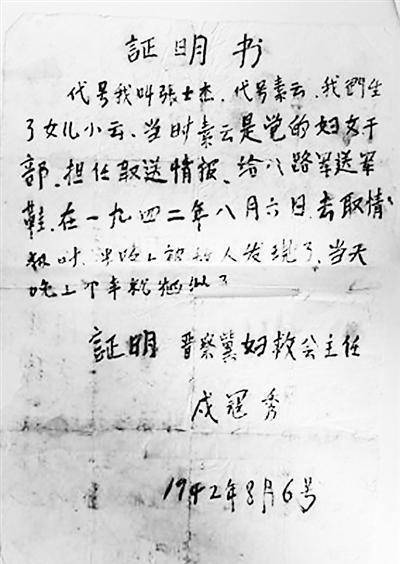 証明书
代号我叫張士杰、代号素云、我們生
了女儿小云、当时素云是党的妇女干
部、担任取送情报、给八路军送军
鞋、在一九四二年八月六日、去取情
报时、半路上被敌人发现了、当天
晚上不幸就牺牲了
証明 晋察冀妇救会主任
戎冠秀
1942年8月6号